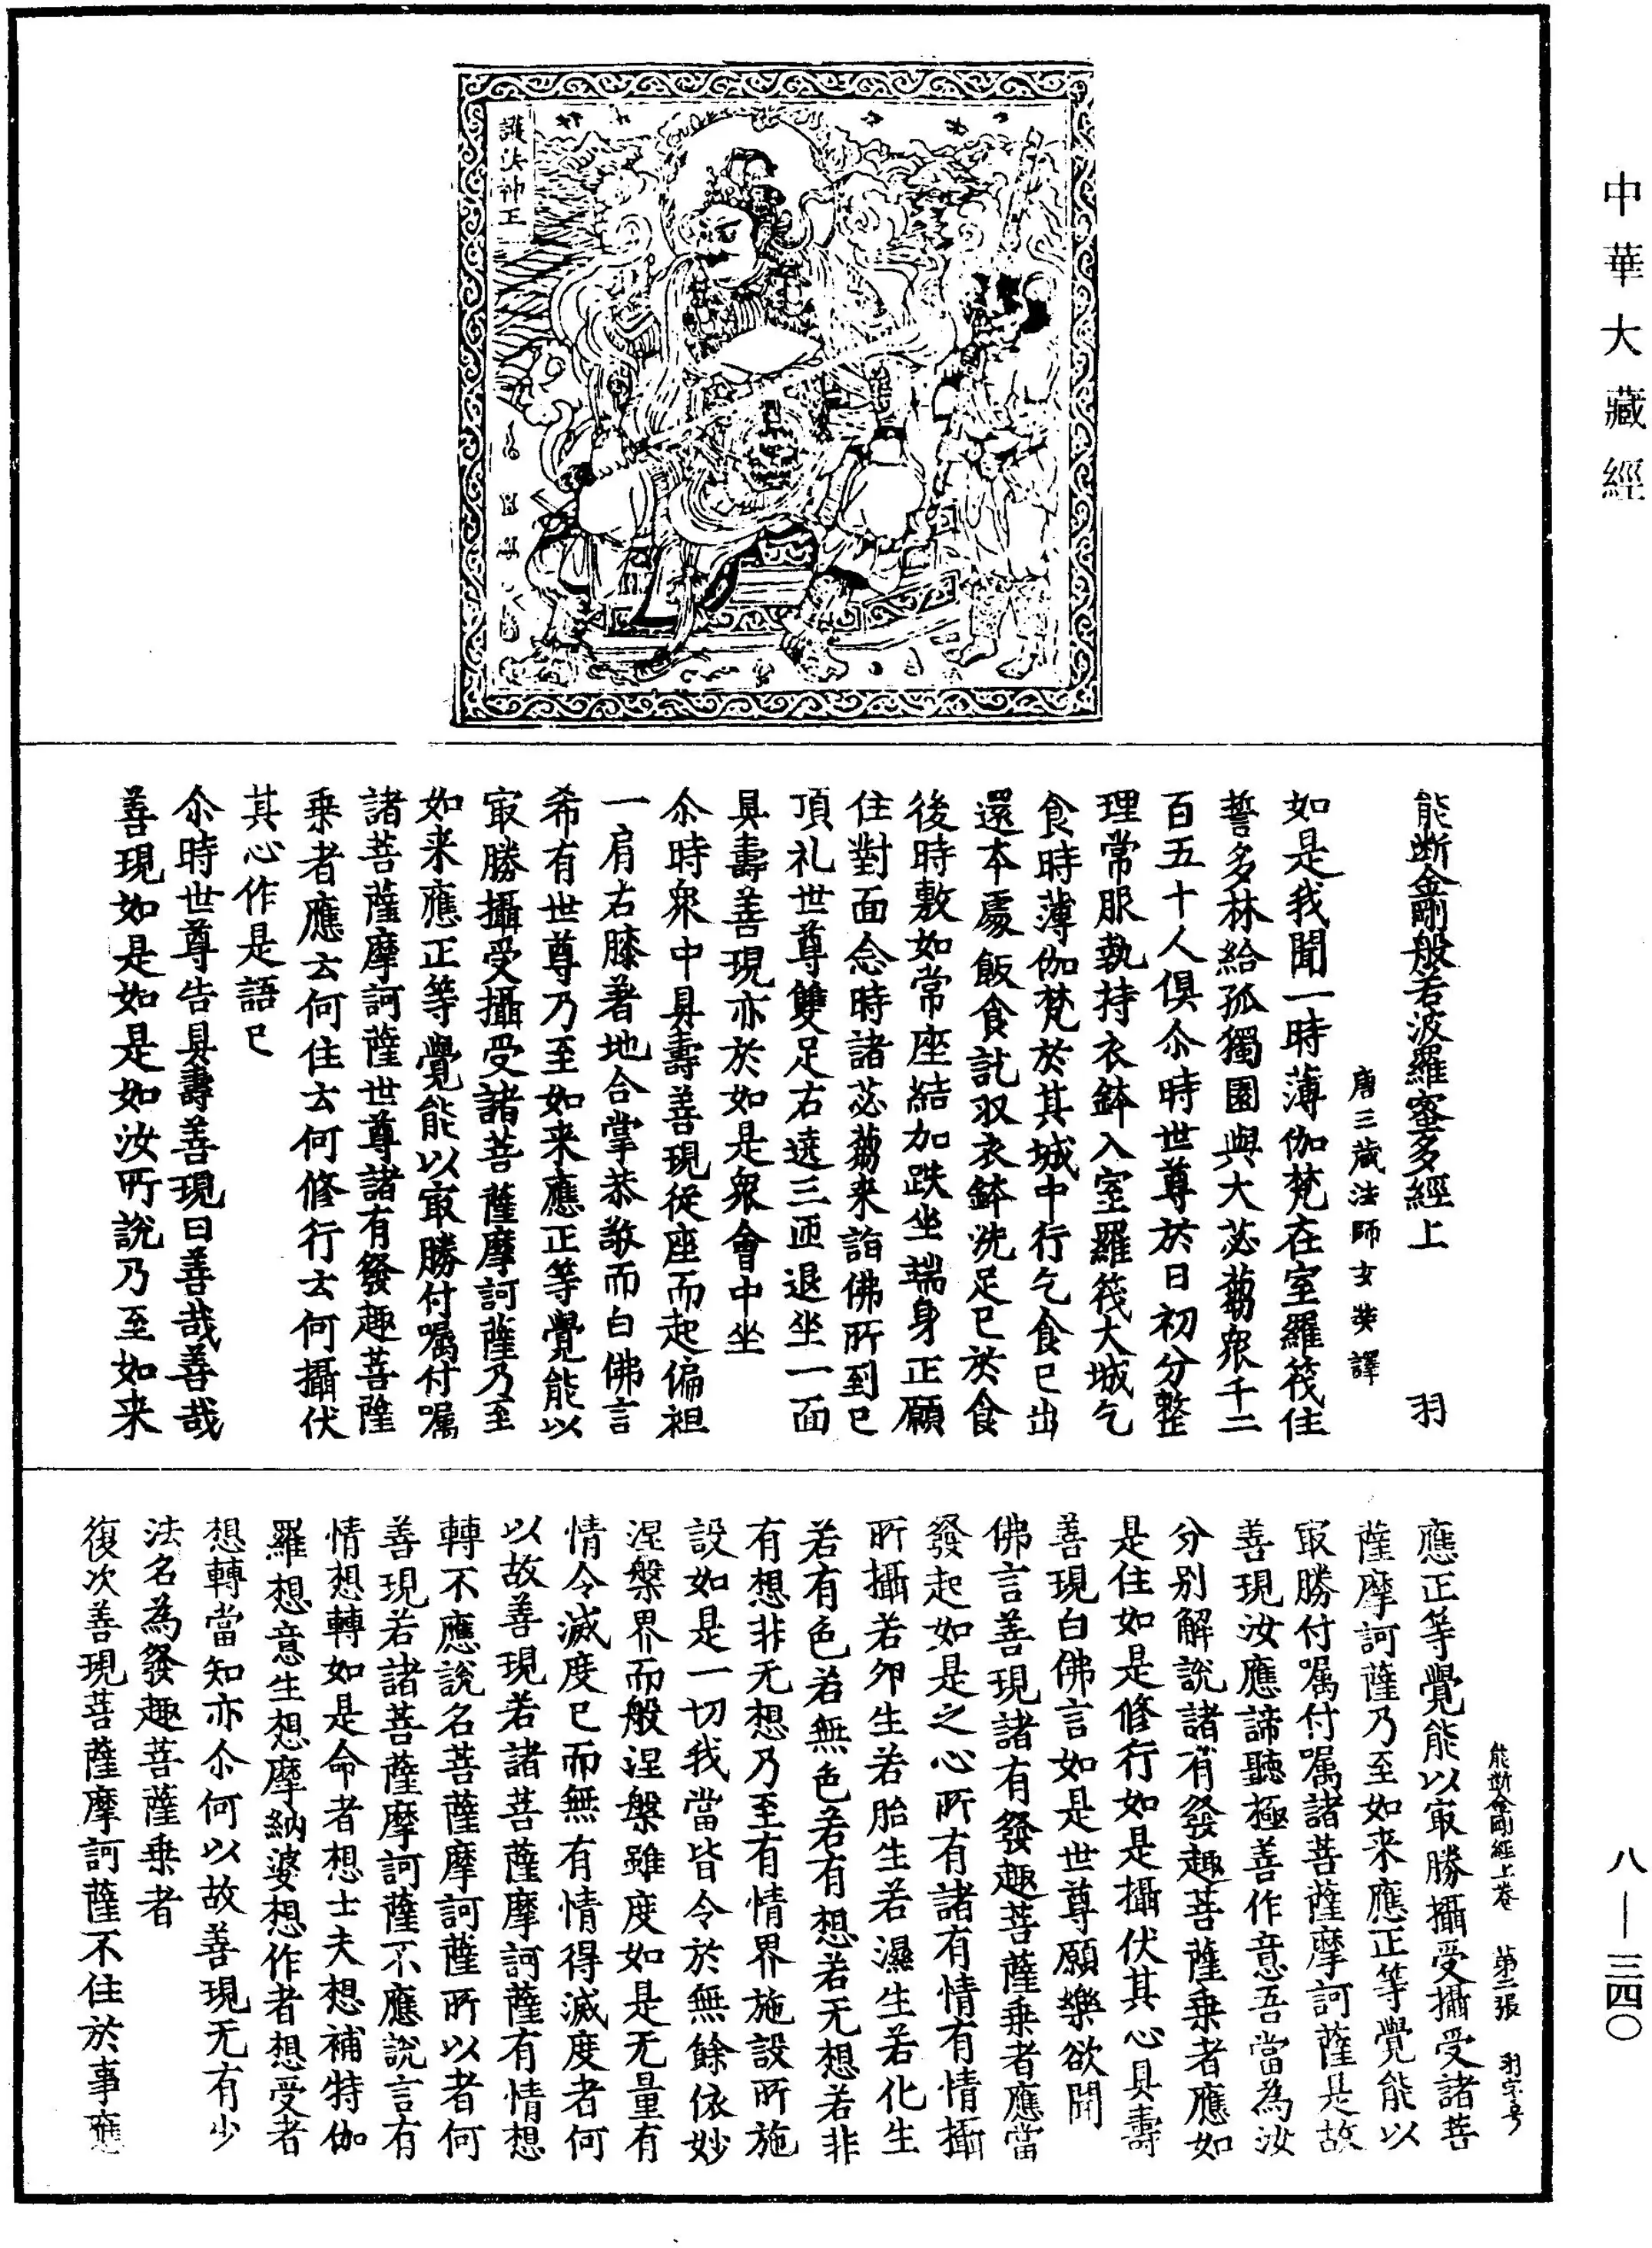 中華大藏經
護法神王
能斷金剛般若波羅蜜多經上 羽
唐三藏法師玄奘譯
如是我聞一時薄伽梵在室羅筏住
誓多林給孤獨園與大苾芻衆千二
百五十人俱尒時世尊於日初分整
理常服執持衣鉢入室羅筏大城乞
食時薄伽梵於其城中行乞食已出
還本處飯食訖収衣鉢洗足已於食
後時敷如常座結加趺坐端身正願
住對面念時諸苾芻来詣佛所到已
頂礼世尊雙足右遶三匝退坐一面
具壽善現亦於如是衆會中坐
尒時衆中具壽善現從座而起偏袒
一肩右膝著地合掌恭敬而白佛言
希有世尊乃至如来應正等覺能以
㝡勝攝受攝受諸菩薩摩訶薩乃至
如来應正等覺能以㝡勝付嘱付嘱
諸菩薩摩訶薩世尊諸有發趣菩薩
乗者應云何住云何修行云何攝伏
其心作是語已
尒時世尊告具壽善現曰善哉善哉
善現如是如是如汝所說乃至如来
能斷金剛經上卷 第二張 羽字号
應正等覺能以㝡勝攝受攝受諸菩
薩摩訶薩乃至如来應正等覺能以
㝡勝付嘱付嘱諸菩薩摩訶薩是故
善現汝應諦聽極善作意吾當為汝
分別解說諸有發趣菩薩乗者應如
是住如是修行如是攝伏其心具壽
善現白佛言如是世尊願樂欲聞
佛言善現諸有發趣菩薩乗者應當
發起如是之心所有諸有情有情攝
所攝若卵生若胎生若濕生若化生
若有色若無色若有想若无想若非
有想非无想乃至有情界施設所施
設如是一切我當皆令於無餘依妙
涅槃界而般涅槃雖度如是无量有
情令滅度已而無有情得滅度者何
以故善現若諸菩薩摩訶薩有情想
轉不應說名菩薩摩訶薩所以者何
善現若諸菩薩摩訶薩不應說言有
情想轉如是命者想士夫想補特伽
羅想意生想摩納婆想作者想受者
想轉當知亦尒何以故善現无有少
法名為發趣菩薩乗者
復次善現菩薩摩訶薩不住於事應
八—三四〇